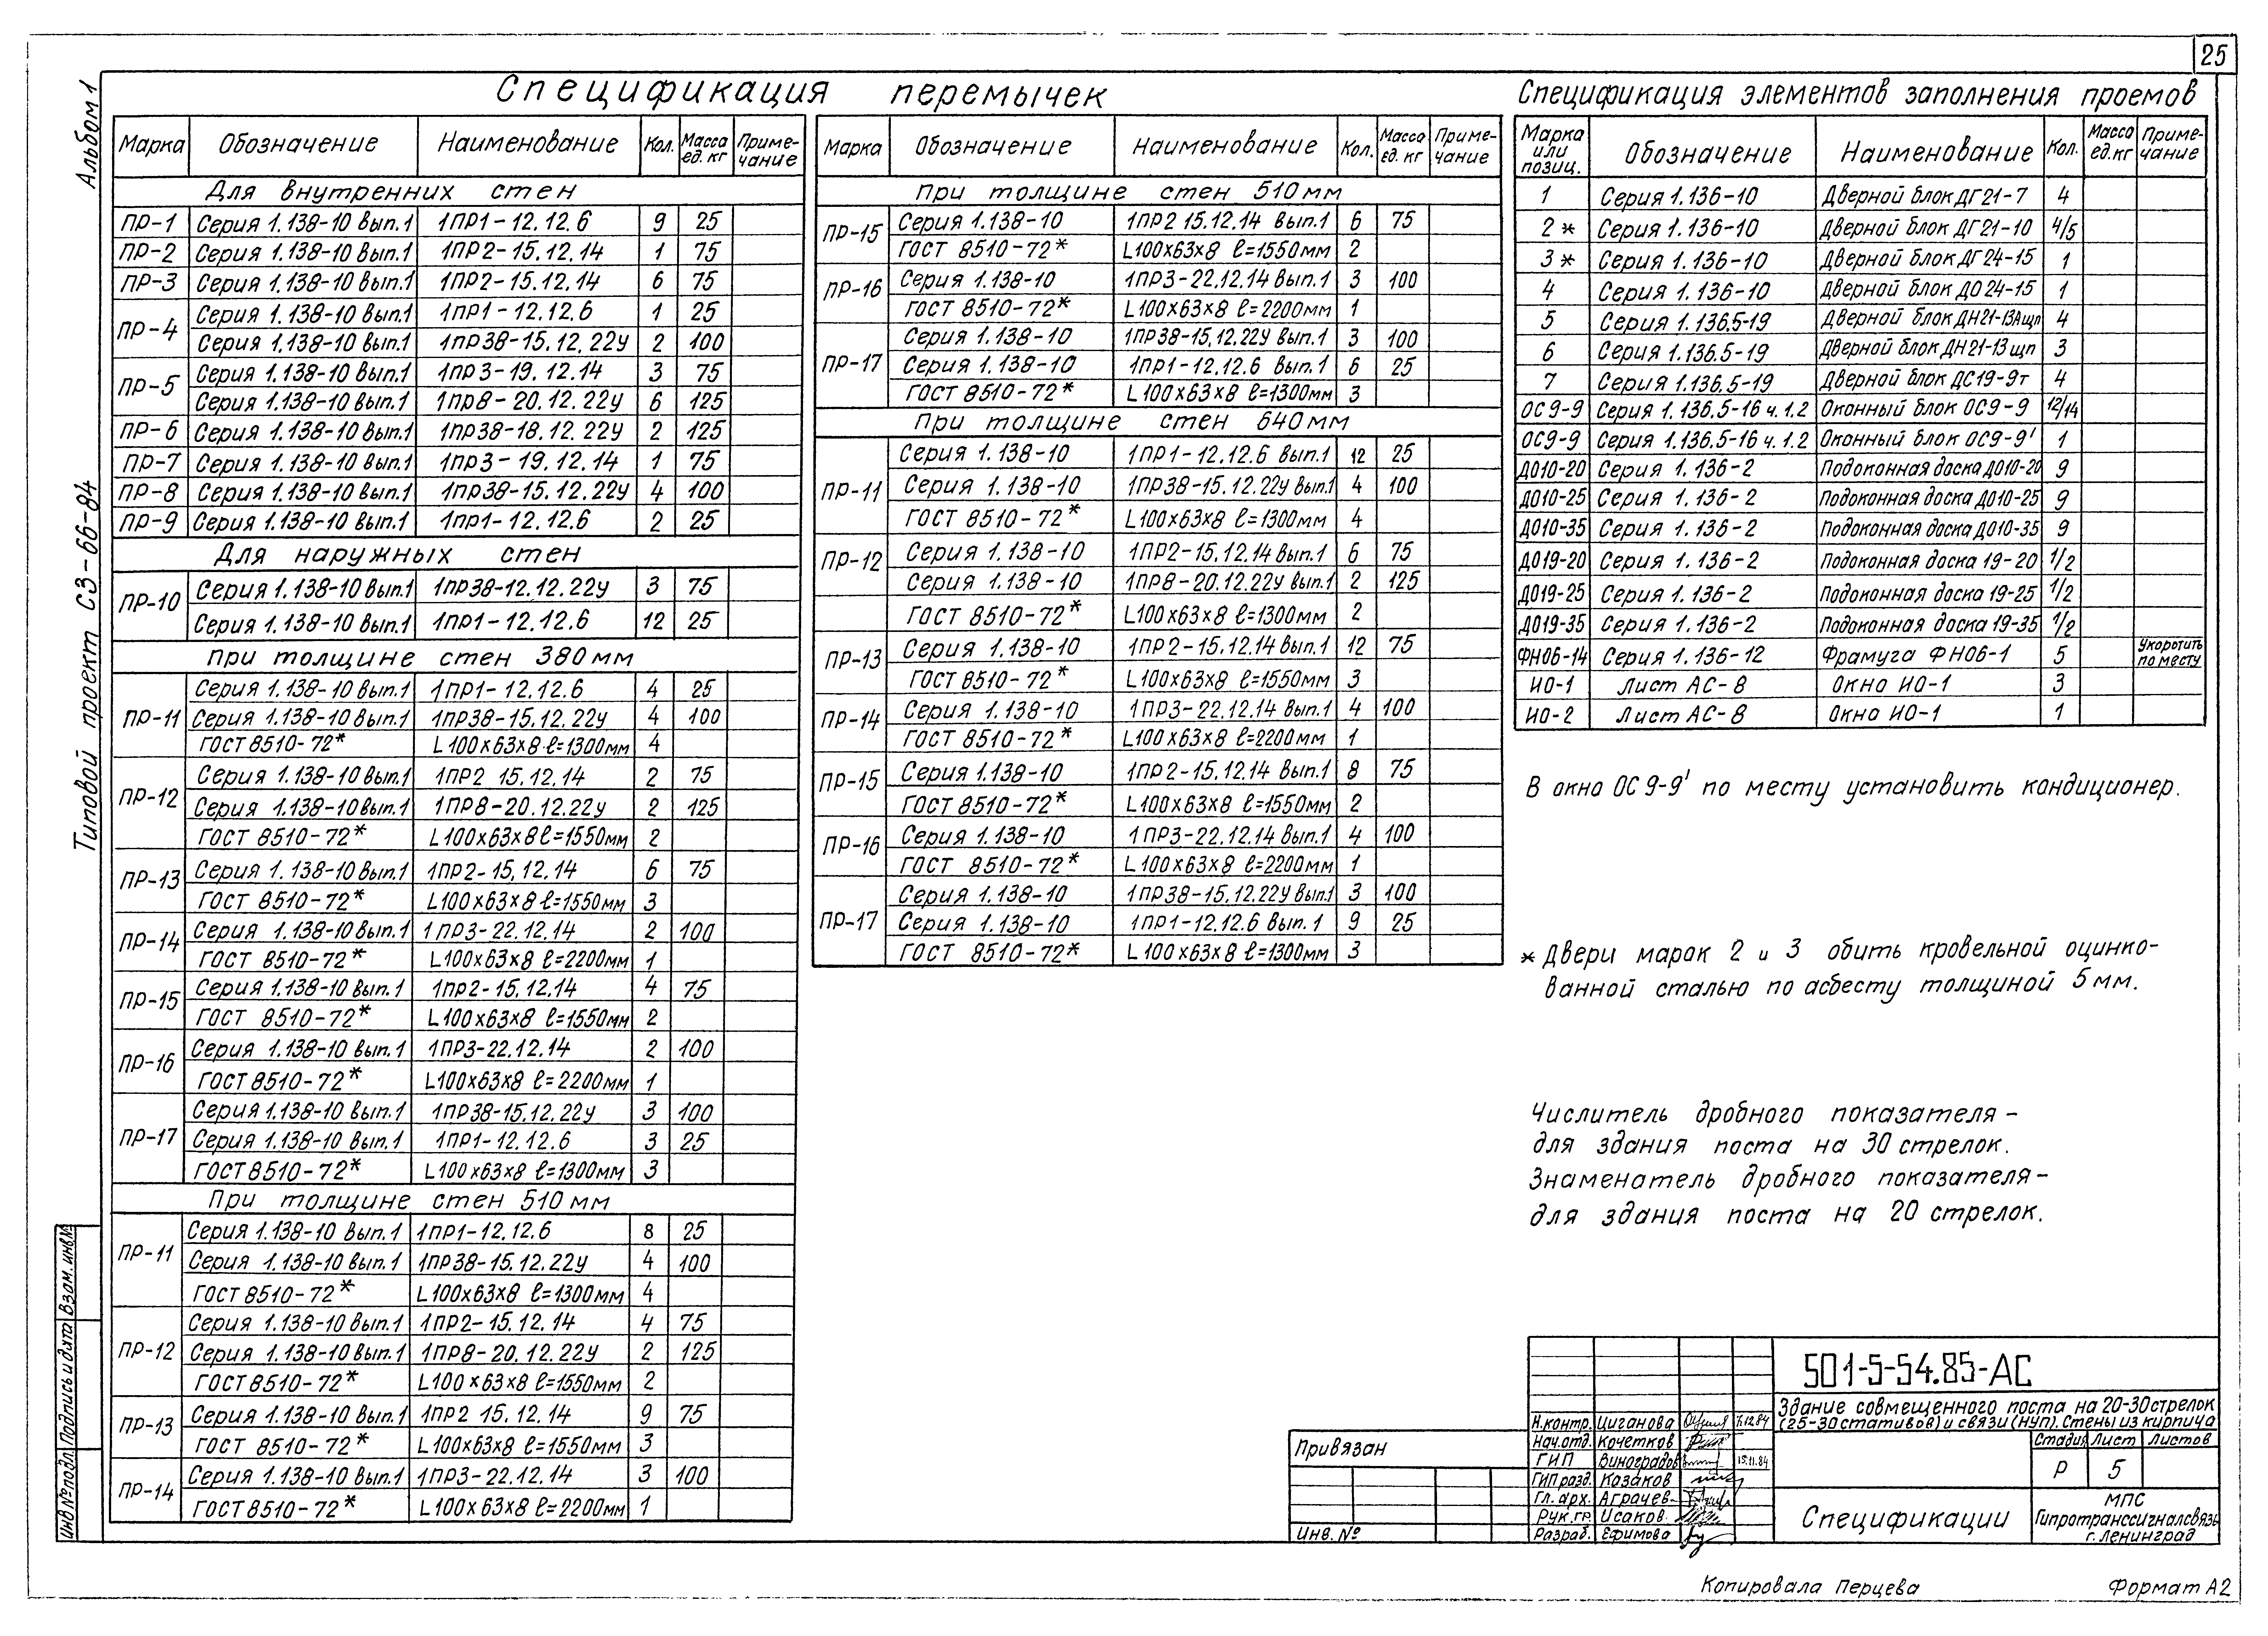 25
Альбом 1
Типовой проект СЗ-66-84
Спецификация перемычек
Марка Обозначение Наименование Кол. Масса ед. кг Примечание
Для внутренних стен
ПР-1 Серия 1.138-10 вып.1 1ПР1-12.12.6 9 25
ПР-2 Серия 1.138-10 вып.1 1ПР2-15.12.14 1 75
ПР-3 Серия 1.138-10 вып.1 1ПР2-15.12.14 6 75
ПР-4 Серия 1.138-10 вып.1 1ПР1-12.12.6 1 25
Серия 1.138-10 вып.1 1ПР38-15.12.22у 2 100
ПР-5 Серия 1.138-10 вып.1 1ПР3-19.12.14 3 75
Серия 1.138-10 вып.1 1ПР8-20.12.22у 6 125
ПР-6 Серия 1.138-10 вып.1 1ПР38-18.12.22у 2 125
ПР-7 Серия 1.138-10 вып.1 1ПР3-19.12.14 1 75
ПР-8 Серия 1.138-10 вып.1 1ПР38-15.12.22у 4 100
ПР-9 Серия 1.138-10 вып.1 1ПР1-12.12.6 2 25
Для наружных стен
ПР-10 Серия 1.138-10 вып.1 1ПР38-12.12.22у 3 75
Серия 1.138-10 вып.1 1ПР1-12.12.6 12 25
При толщине стен 380мм
ПР-11 Серия 1.138-10 вып.1 1ПР1-12.12.6 4 25
Серия 1.138-10 вып.1 1ПР38-15.12.22у 4 100
ГОСТ 8510-72* L100х63х8 ℓ=1300мм 4
ПР-12 Серия 1.138-10 вып.1 1ПР2 15.12.14 2 75
Серия 1.138-10 вып.1 1ПР8-20.12.22у 2 125
ГОСТ 8510-72* L100х63х8 ℓ=1550мм 2
ПР-13 Серия 1.138-10 вып.1 1ПР2-15.12.14 6 75
ГОСТ 8510-72* L100х63х8 ℓ=1550мм 3
ПР-14 Серия 1.138-10 вып.1 1ПР3-22.12.14 2 100
ГОСТ 8510-72* L100х63х8 ℓ=2200мм 1
ПР-15 Серия 1.138-10 вып.1 1ПР2-15.12.14 4 75
ГОСТ 8510-72* L100х63х8 ℓ=1550мм 2
ПР-16 Серия 1.138-10 вып.1 1ПР3-22.12.14 2 100
ГОСТ 8510-72* L100х63х8 ℓ=2200мм 1
ПР-17 Серия 1.138-10 вып.1 1ПР38-15.12.22у 3 100
Серия 1.138-10 вып.1 1ПР1-12.12.6 3 25
ГОСТ 8510-72* L100х63х8 ℓ=1300мм 3
При толщине стен 510мм
ПР-11 Серия 1.138-10 вып.1 1ПР1-12.12.6 8 25
Серия 1.138-10 вып.1 1ПР38-15.12.22у 4 100
ГОСТ 8510-72* L100х63х8 ℓ=1300мм 4
ПР-12 Серия 1.138-10 вып.1 1ПР2-15.12.14 4 75
Серия 1.138-10 вып.1 1ПР8-20.12.22у 2 125
ГОСТ 8510-72* L100х63х8 ℓ=1550мм 2
ПР-13 Серия 1.138-10 вып.1 1ПР2 15.12.14 9 75
ГОСТ 8510-72* L100х63х8 ℓ=1550мм 3
ПР-14 Серия 1.138-10 вып.1 1ПР3-22.12.14 3 100
ГОСТ 8510-72* L100х63х8 ℓ=2200мм 1
Марка Обозначение Наименование Кол. Масса ед. кг Примечание
При толщине стен 510мм
ПР-15 Серия 1.138-10 1ПР2 15.12.14 вып.1 6 75
ГОСТ 8510-72* L100х63х8 ℓ=1550мм 2
ПР-16 Серия 1.138-10 1ПР3-22.12.14 вып.1 3 100
ГОСТ 8510-72* L100х63х8 ℓ=2200мм 1
ПР-17 Серия 1.138-10 1ПР38-15.12.22у вып.1 3 100
Серия 1.138-10 1ПР1-12.12.6 вып.1 6 25
ГОСТ 8510-72* L100х63х8 ℓ=1300мм 3
При толщине стен 640мм
ПР-11 Серия 1.138-10 1ПР1-12.12.6 вып.1 12 25
Серия 1.138-10 1ПР38-15.12.22у вып.1 4 100
ГОСТ 8510-72* L100х63х8 ℓ=1300мм 4
ПР-12 Серия 1.138-10 1ПР2-15.12.14 вып.1 6 75
Серия 1.138-10 1ПР8-20.12.22у вып.1 2 125
ГОСТ 8510-72* L100х63х8 ℓ=1300мм 2
ПР-13 Серия 1.138-10 1ПР2-15.12.14 вып.1 12 75
ГОСТ 8510-72* L100х63х8 ℓ=1550мм 3
ПР-14 Серия 1.138-10 1ПР3-22.12.14 вып.1 4 100
ГОСТ 8510-72* L100х63х8 ℓ=2200мм 1
ПР-15 Серия 1.138-10 1ПР2-15.12.14 вып.1 8 75
ГОСТ 8510-72* L100х63х8 ℓ=1550мм 2
ПР-16 Серия 1.138-10 1ПР3-22.12.14 вып.1 4 100
ГОСТ 8510-72* L100х63х8 ℓ=2200мм 1
ПР-17 Серия 1.138-10 1ПР38-15.12.22у вып.1 3 100
Серия 1.138-10 1ПР1-12.12.6 вып.1 9 25
ГОСТ 8510-72* L100х63х8 ℓ=1300мм 3
Спецификация элементов заполнения проемов
Марка или позиц. Обозначение Наименование Кол. Масса ед.кг Примечание
1 Серия 1.136-10 Дверной блок ДГ21-7 4
2* Серия 1.136-10 Дверной блок ДГ21-10 4/5
3* Серия 1.136-10 Дверной блок ДГ24-15 1
4 Серия 1.136-10 Дверной блок ДО24-15 1
5 Серия 1.136.5-19 Дверной блок ДН21-13Ащп 4
6 Серия 1.136.5-19 Дверной блок ДН21-13щп 3
7 Серия 1.136.5-19 Дверной блок ДС19-9т 4
ОС9-9 Серия 1.136.5-16 ч.1.2 Оконный блок ОС9-9 12/14
ОС9-9 Серия 1.136.5-16 ч.1.2 Оконный блок ОС9-9' 1
ДО10-20 Серия 1.136-2 Подоконная доска ДО10-20 9
ДО10-25 Серия 1.136-2 Подоконная доска ДО10-25 9
ДО10-35 Серия 1.136-2 Подоконная доска ДО10-35 9
ДО19-20 Серия 1.136-2 Подоконная доска 19-20 1/2
ДО19-25 Серия 1.136-2 Подоконная доска 19-25 1/2
ДО19-35 Серия 1.136-2 Подоконная доска 19-35 1/2
ФН06-14 Серия 1.136-12 Фрамуга ФН06-1 5 Укоротить по месту
ИО-1 Лист АС-8 Окно ИО-1 3
ИО-2 Лист АС-8 Окно ИО-1 1
В окно ОС9-9' по месту установить кондиционер.
* Двери марок 2 и 3 обить кровельной оцинко-
ванной сталью по асбесту толщиной 5мм.
Числитель дробного показателя –
для здания поста на 30 стрелок.
Знаменатель дробного показателя –
для здания поста на 20 стрелок.
Инв № подл. Подпись и дата Взам. инв.№
Привязан
Инв. №
Н.контр. Циганова 7.12.84
Нач.отд. Кочетков
ГИП Виноградов 15.11.84
ГИП разд. Козаков
Гл. арх. Аграчев
Рук.гр. Исаков
Разраб. Ефимова
501-5-54.85-АС
Здание совмещенного поста на 20-30 стрелок
(25-30 стативов) и связи (НУП). Стены из кирпича
Стадия Лист Листов
Р 5
Спецификации
МПС
Гипротранссигналсвязь
г. Ленинград
Копировала Перцева
Формат А2